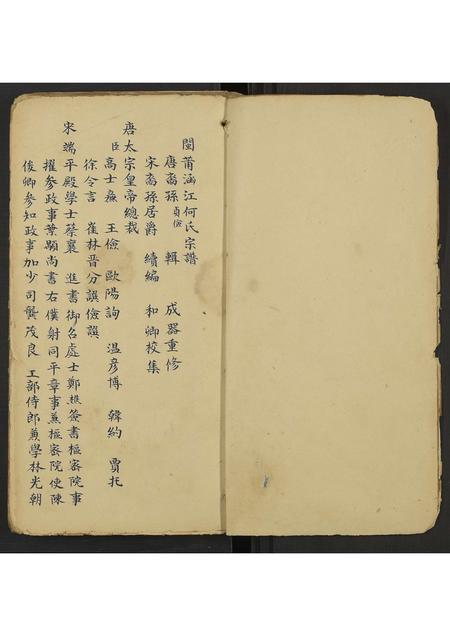 閩莆涵江何氏宗譜
唐裔孫貞儉 輯 成器重修
宋裔孫居爵 續編 和卿校集
唐太宗皇帝總裁
臣高士廉 王儉 歐陽詢 温彦博 韓約 賈托
徐令言 崔林晋分譔儉譔
宋端平殿學士蔡襄 進書御名處士鄭樵簽書樞密院事
擢參政事葉顒尚書右僕射同平章事兼樞密院使陳
俊卿參知政事加少司龔茂良 工部侍郎兼學林光朝